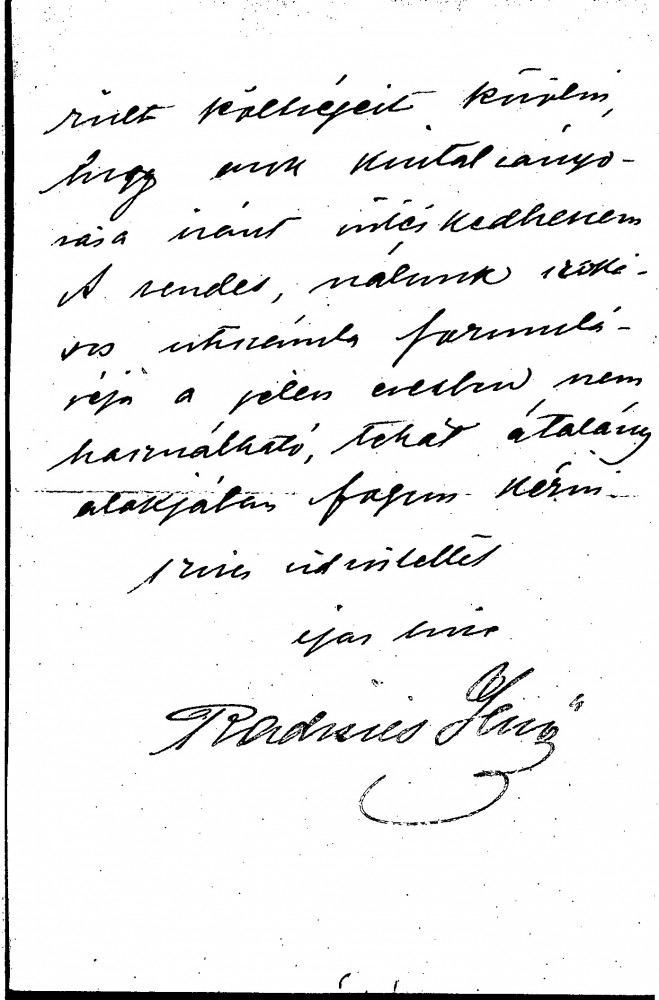 rült költségeit közölni,
hogy azok kiutalványo-
zása iránt intézkedhessem
A rendes, nálunk szoká-
sos utiszámla formulá-
réja a jelen esetben nem
használható, tehát átalány
alakjában fogom kérni.
szives üdvözlettel
igaz hive
Radisics Jenő